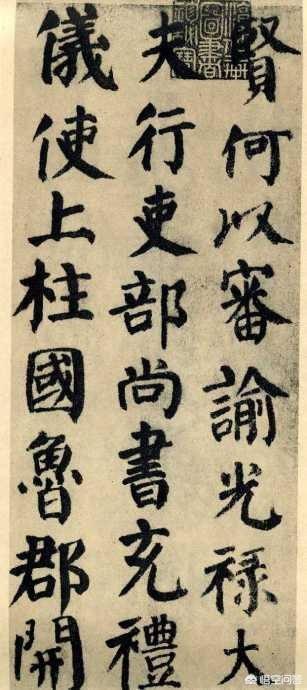 賢何以審諭光祿大
夫行吏部尚書充禮
儀使上柱國魯郡開
悟空问答